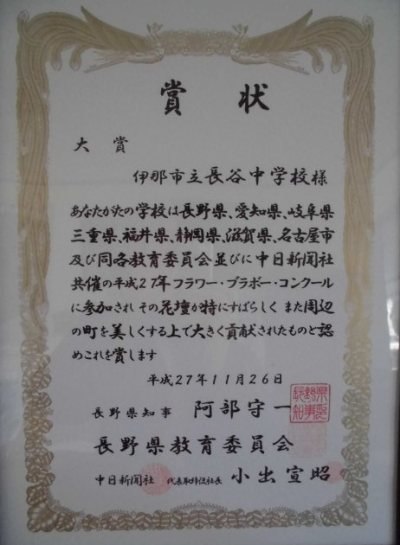 賞状
大賞
伊那市立長谷中学校様
あなたがたの学校は長野県、愛知県、岐阜県
三重県、福井県、静岡県、滋賀県、名古屋市
及び同各教育委員会並びに中日新聞社
共催の平成27年フラワー・ブラボー・コンクール
に参加されその花壇が特にすばらしくまた周辺
の町を美しくする上で大きく貢献されたものと認
めこれを賞します
平成27年11月26日
長野県知事 阿部守一
長野県教育委員会
中日新聞社 代表取締役社長 小出宣昭